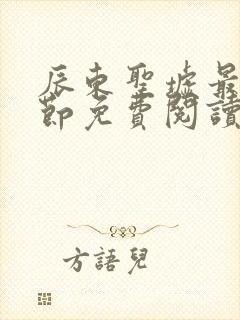 辰東聖墟最
節免費閱讀
方語兒